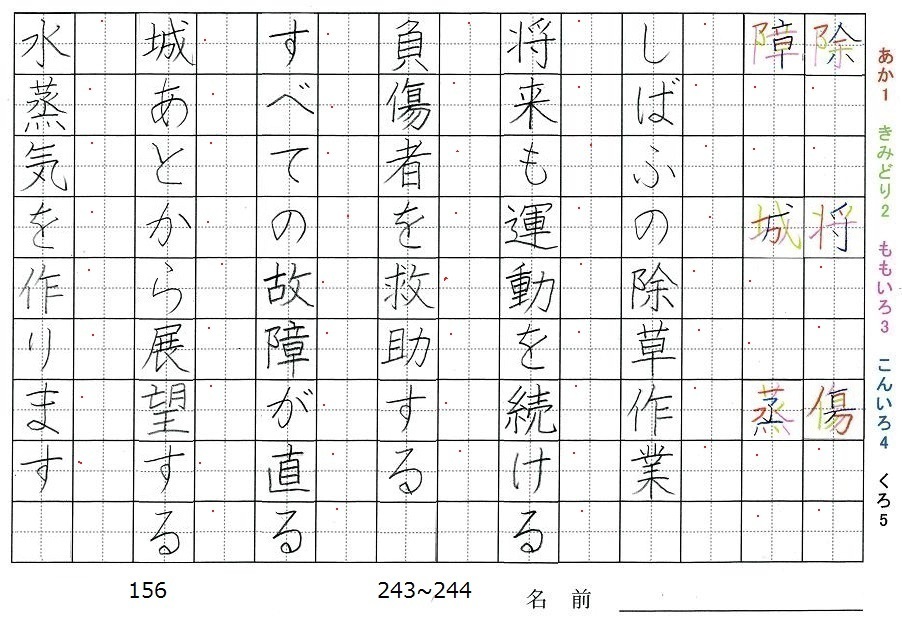 あか1 きみどり2 ももいろ3 こんいろ4 くろ5
除 将 傷
障 城 蒸
しばふの除草作業
将来も運動を続ける
負傷者を救助する
すべての故障が直る
城あとから展望する
水蒸気を作ります
156
243~244
名前